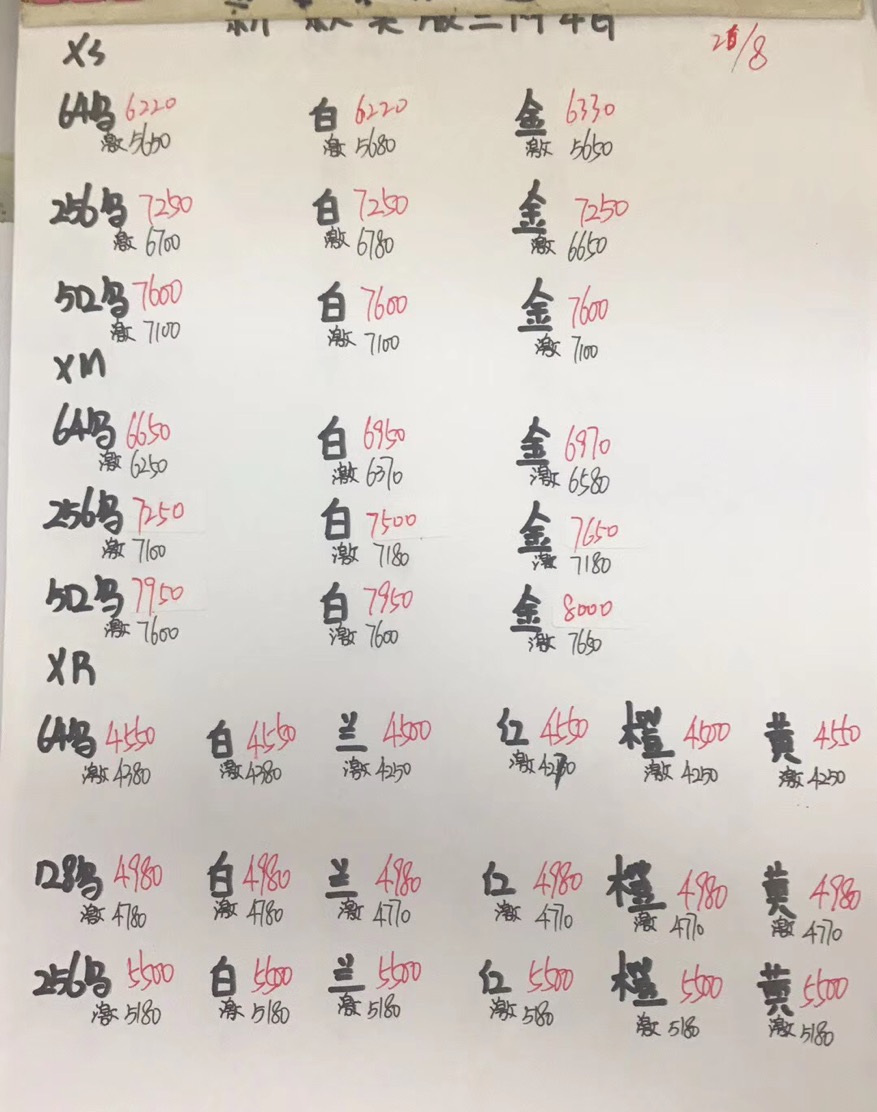 XS
64乌 6220 白 6220 金 6330
激 5650 激 5680 激 5650
256乌 7250 白 7250 金 7250
激 6700 激 6780 激 6650
512乌 7600 白 7600 金 7600
激 7100 激 7100 激 7100
XM
64乌 6650 白 6950 金 6970
激 6250 激 6370 激 6580
256乌 7250 白 7500 金 7650
激 7100 激 7180 激 7180
512乌 7950 白 7950 金 8000
激 7600 激 7600 激 7650
XR
64乌 4550 白 4550 兰 4500 红 4550 橙 4500 黄 4550
激 4380 激 4380 激 4250 激 激 4250 激 4250
128乌 4980 白 4980 兰 4980 红 4980 橙 4980 黄 4980
激 4780 激 4780 激 4770 激 4770 激 4770 激 4770
256乌 5500 白 5500 兰 5500 红 5500 橙 5500 黄 5500
激 5180 激 5180 激 5180 激 5180 激 5180 激 5180